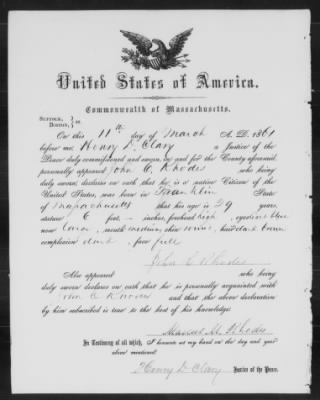 United States of America.
Commonwealth of Massachusetts.
SUFFOLK, } ss.
BOSTON, }
On this 11th day of March A. D. 1861
before me, Henry D. Clary a Justice of the
Peace duly commissioned and sworn, in and for the County aforesaid,
personally appeared John C. Rhodes who being
duly sworn, declares on oath that he is a native Citizen of the
United States, was born in Franklin State
of Massachusetts that his age is 29 years,
stature 6 feet, — inches, forehead high, eyes blue
nose large, mouth medium, chin hair dark brown
complexion dark, face full
John C Rhodes
Also appeared who being
duly sworn declares on oath that he is personally acquainted with
John C Rhodes and that the above declaration
by him subscribed is true to the best of his knowledge.
Marcus M. Rhodes
In Testimony of all which, I hereunto set my hand on the day and year
above mentioned.
Henry D. Clary Justice of the Peace.